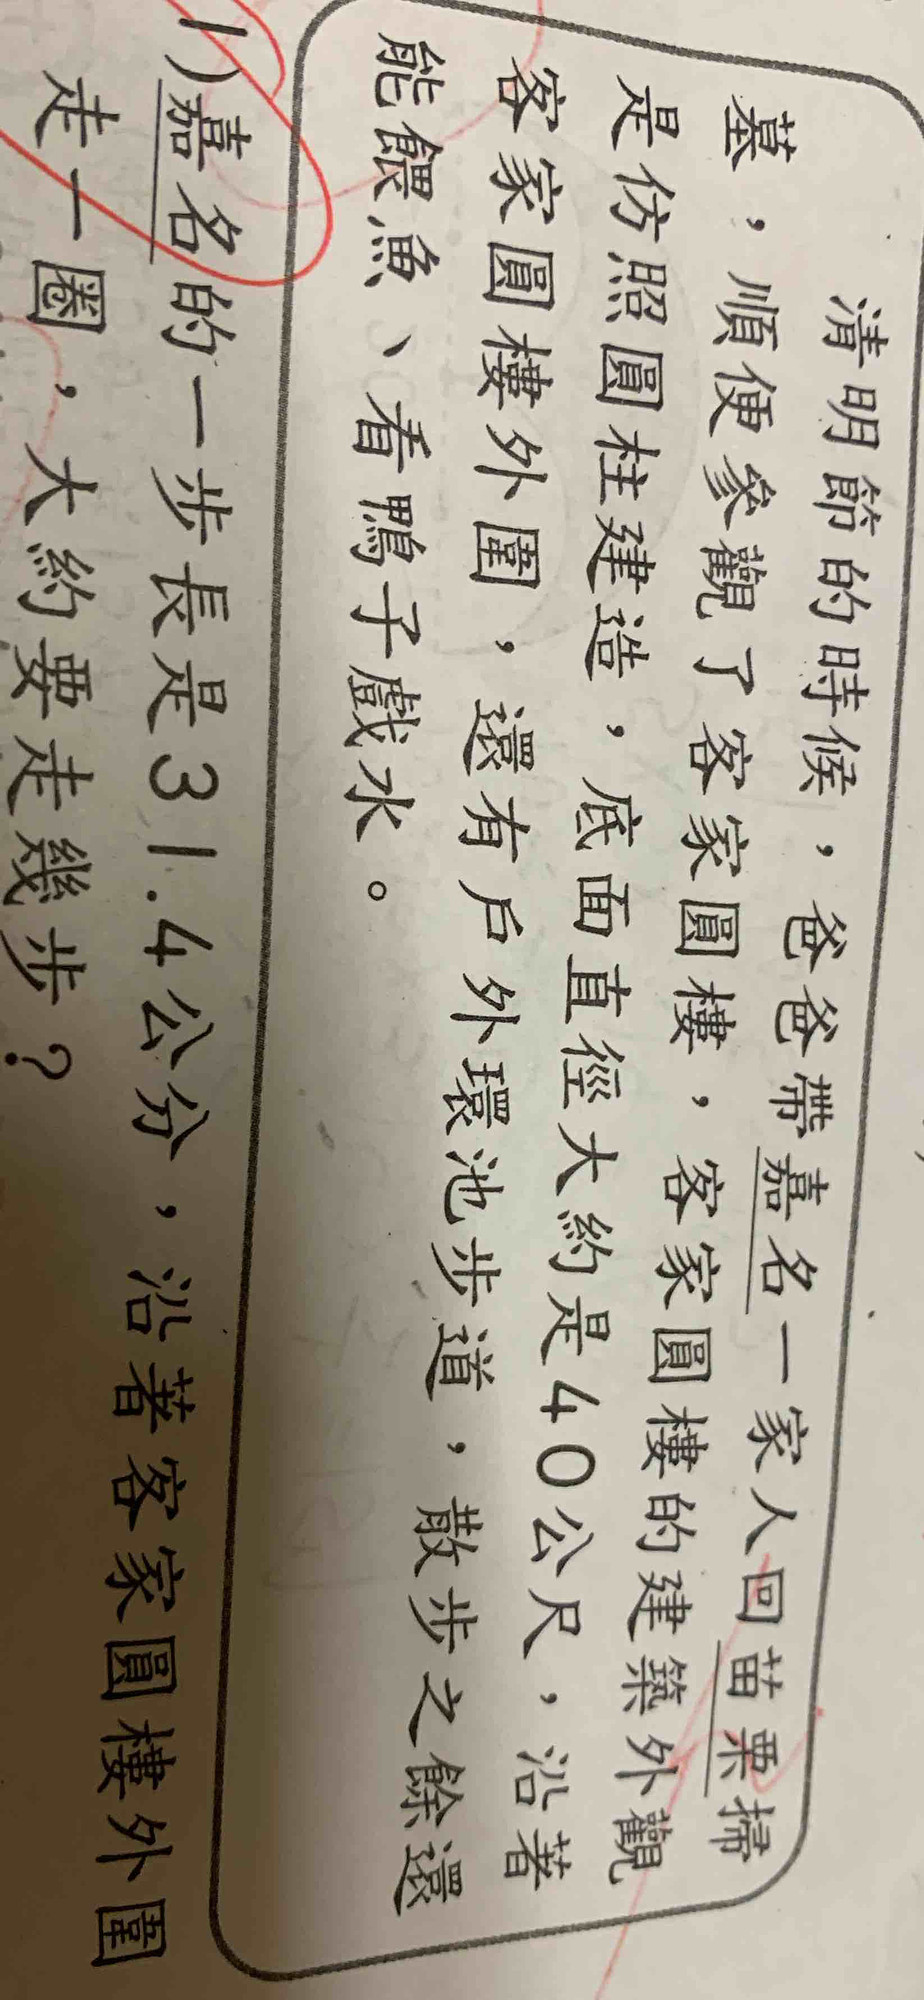 清明節的時候，爸爸帶嘉名一家人回苗栗掃
墓，順便參觀了客家圓樓，客家圓樓的建築外觀
是仿照圓柱建造，底面直徑大約是40公尺，沿著
客家圓樓外圍，還有戶外環池步道，散步之餘還
能餵魚、看鴨子戲水。
1)嘉名的一步長是31.4公分，沿著客家圓樓外圍
走一圈，大約要走幾步？